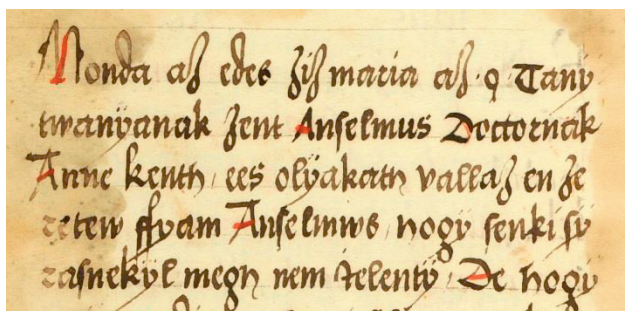 Monda aʒ edes ʒiʒ maria aʒ · o̗ Tany
twanÿanak ʒent Anselmus Doctornak
Anne kenth, ees olÿakath vallaʒ en ʒe
retew ffyam Anselmws, hogÿ senki sÿ
rasnekÿl megh nem ielentÿ, De hogÿ